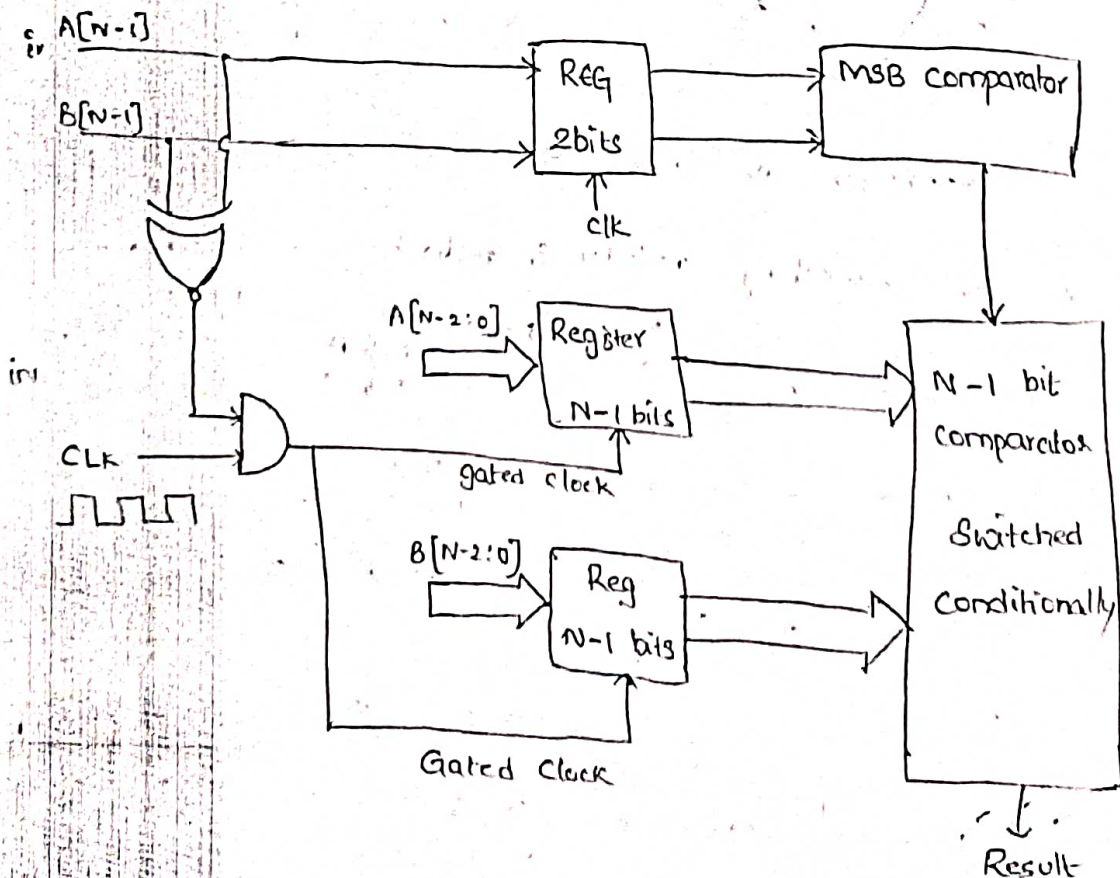 A[N-1]
REG
2bits
MSB comparator
B[N-1]
clk
A[N-2:0]
Register
N-1 bits
N-1 bit
comparator
Switched
Conditionally
CLK
gated clock
B[N-2:0]
Reg
N-1 bits
Gated Clock
Result